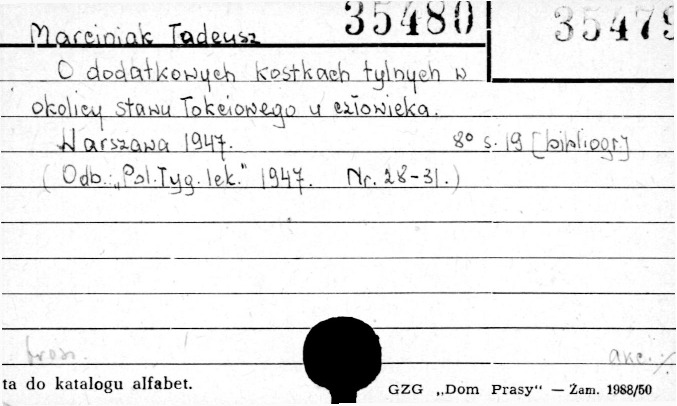 35480 35479
Marciniak Tadeusz
O dodatkowych kostkach tylnych w
okolicy stawu łokciowego u człowieka.
Warszawa 1947. 8° s. 19 [bibliogr.]
(Odb.: „Pol. Tyg. lek." 1947. Nr. 28-31.)
brosz. akc. /.
ta do katalogu alfabet. GZG „Dom Prasy" — Zam. 1988/50